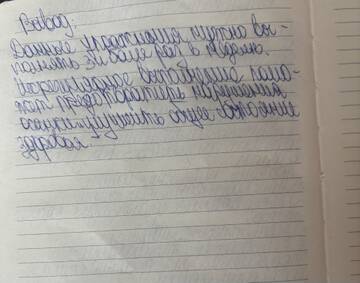 Вывод:
Данные упражнения нужно вы-
полнять 3 и более раз в неделю.
выполнение помо-
жет предотвратить нарушения
осанки и улучшить общее состояние
здоровья